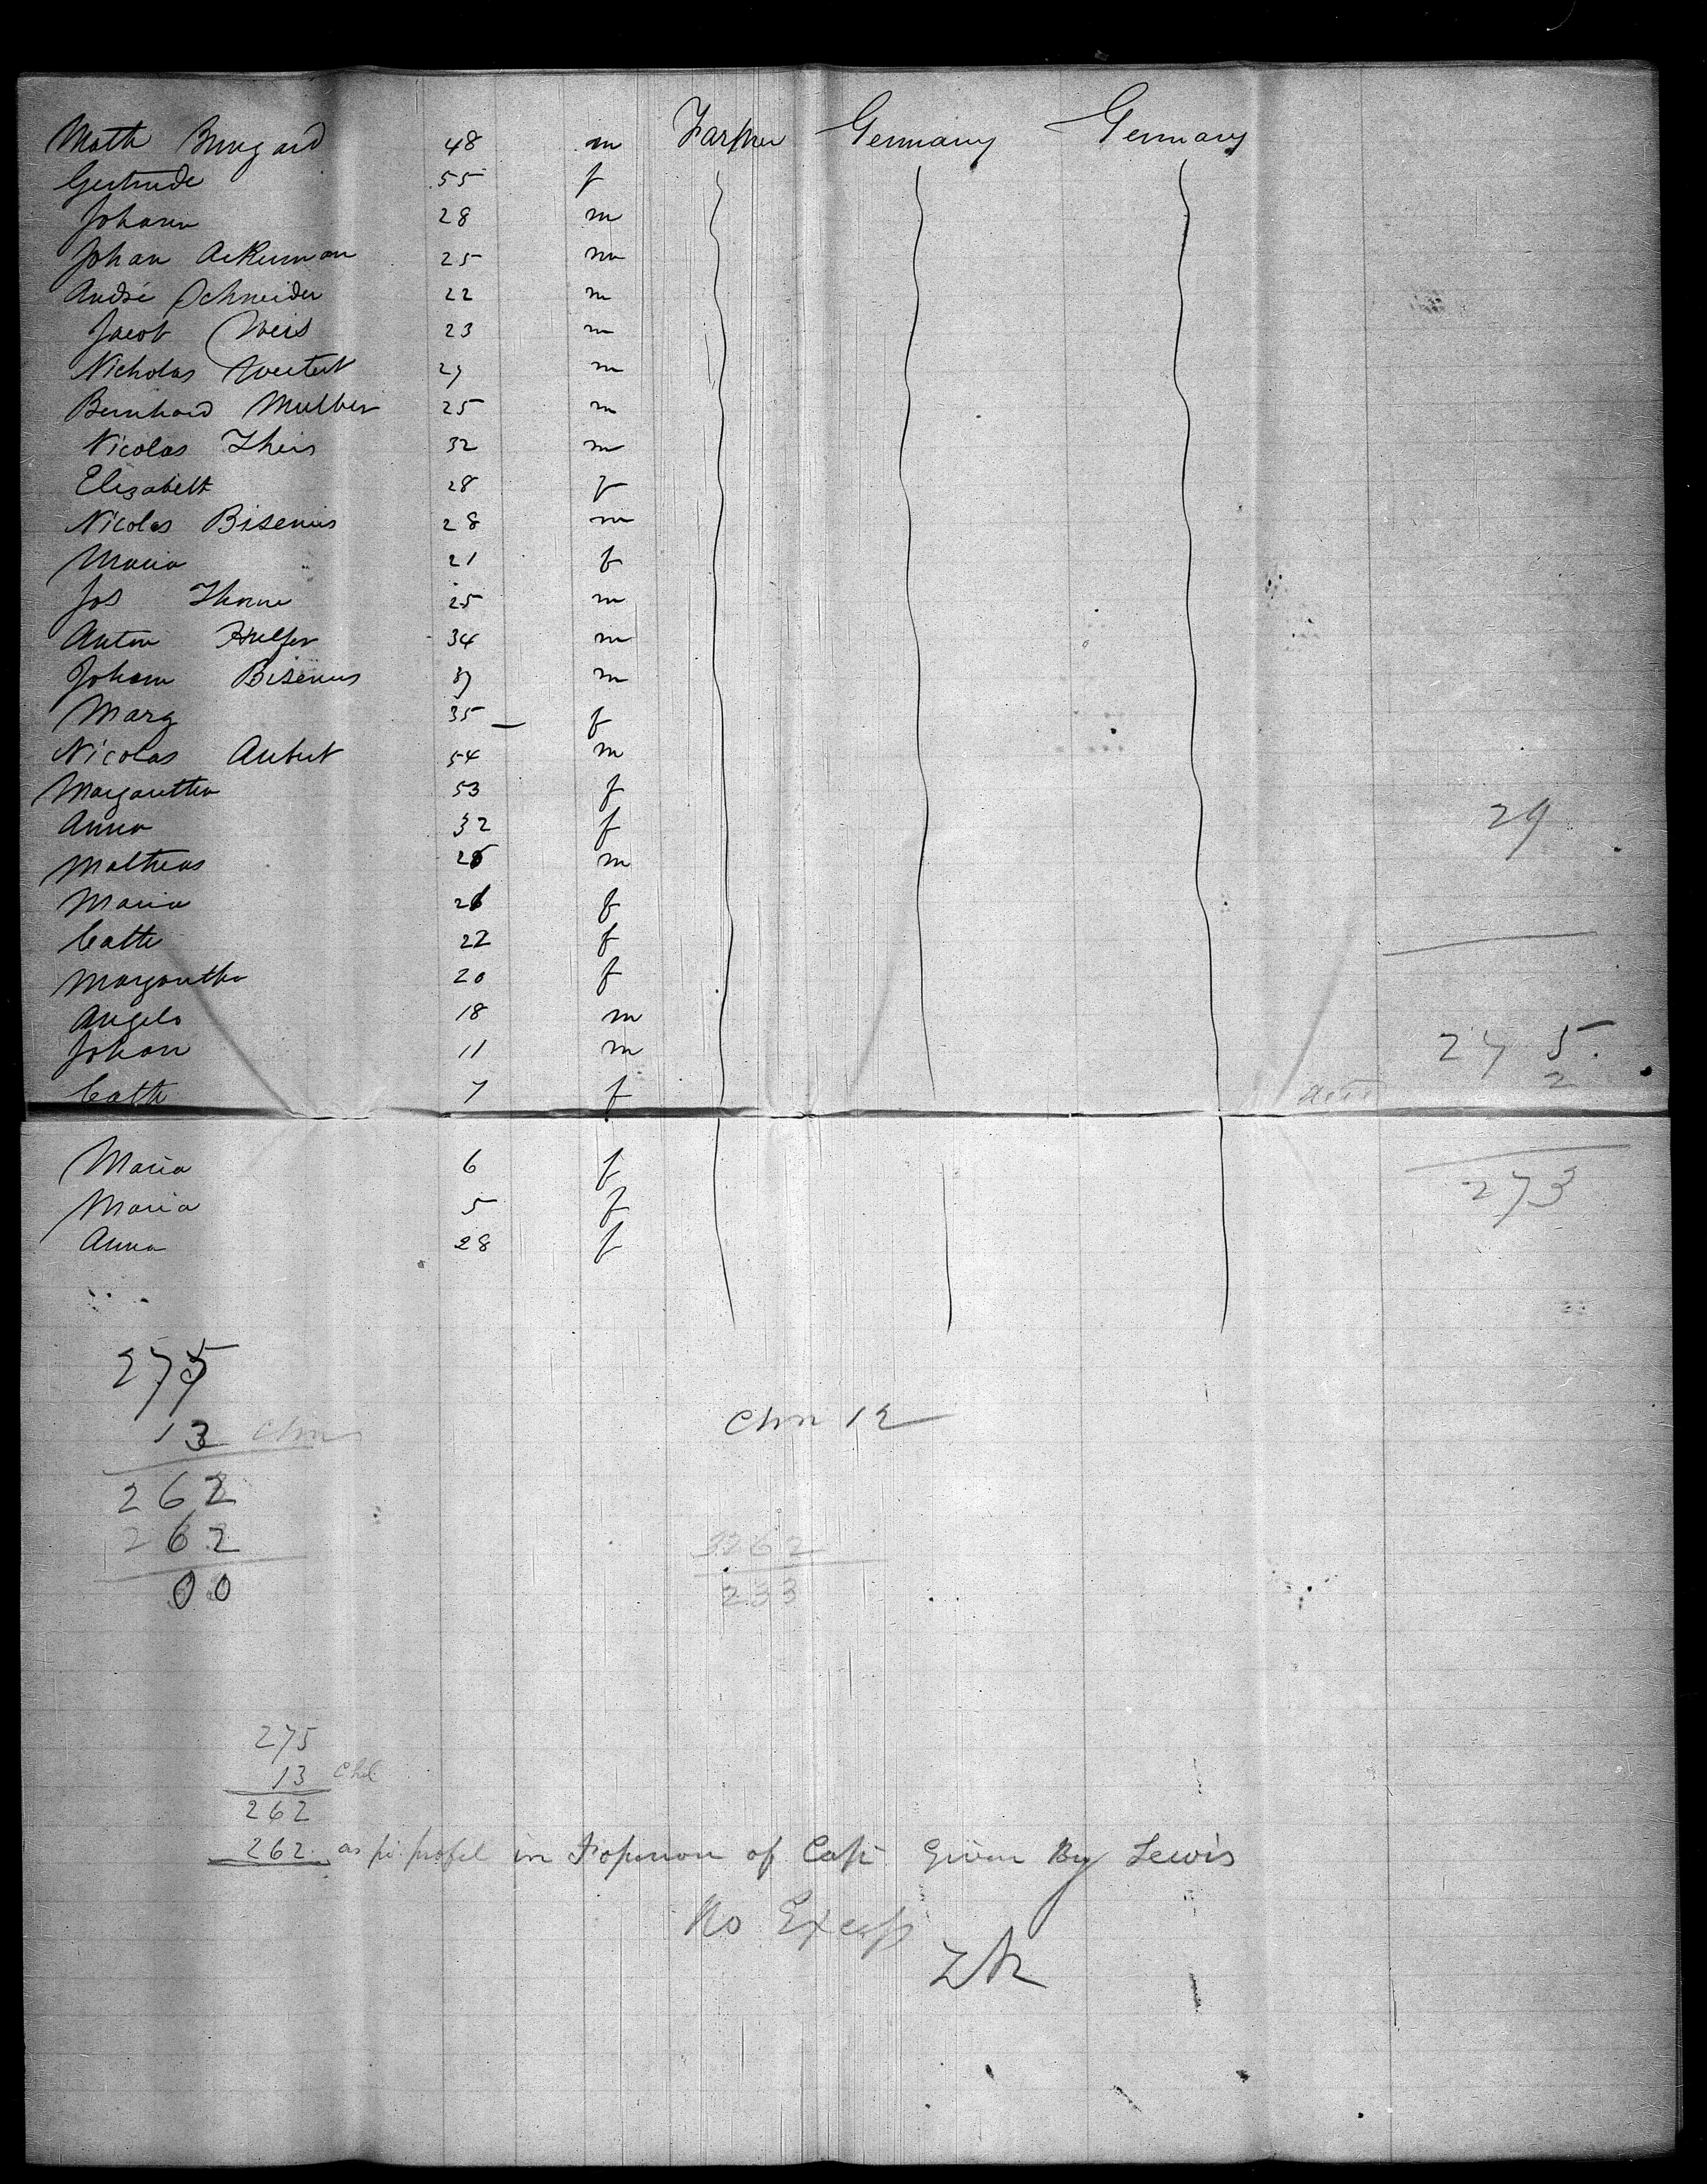 Math Bungard 48 m Farmer Germany Germany
Gertrude 55 f
Johann 28 m
Johan Ackerman 25 m
André Schneider 22 m
Jacob Weis 23 m
Nicholas 27 m
Bernhard 25 m
Nicolas Theis 32 m
Elizabeth 28 f
Nicolas Bisenius 28 m
Maria 21 f
Jos 25 m
Anton Hulfer 34 m
Johann Bisenius 37 m
Marg 35 f
Nicolas Aubert 54 m
Margaretha 53 f
Anna 32 f
29
Matheas 28 m
Maria 26 f
Cath 22 f
Margaretha 20 f
Angelo 18 m
Johan 11 m
275
Cath 7 f
2
Maria 6 f
273
Maria 5 f
Anna 28 f
275
13 Chn
Chn 12
262
262
3262
00
233
275
13 Chd
262
262 as pr in of Capt Given By Lewis
No Excess